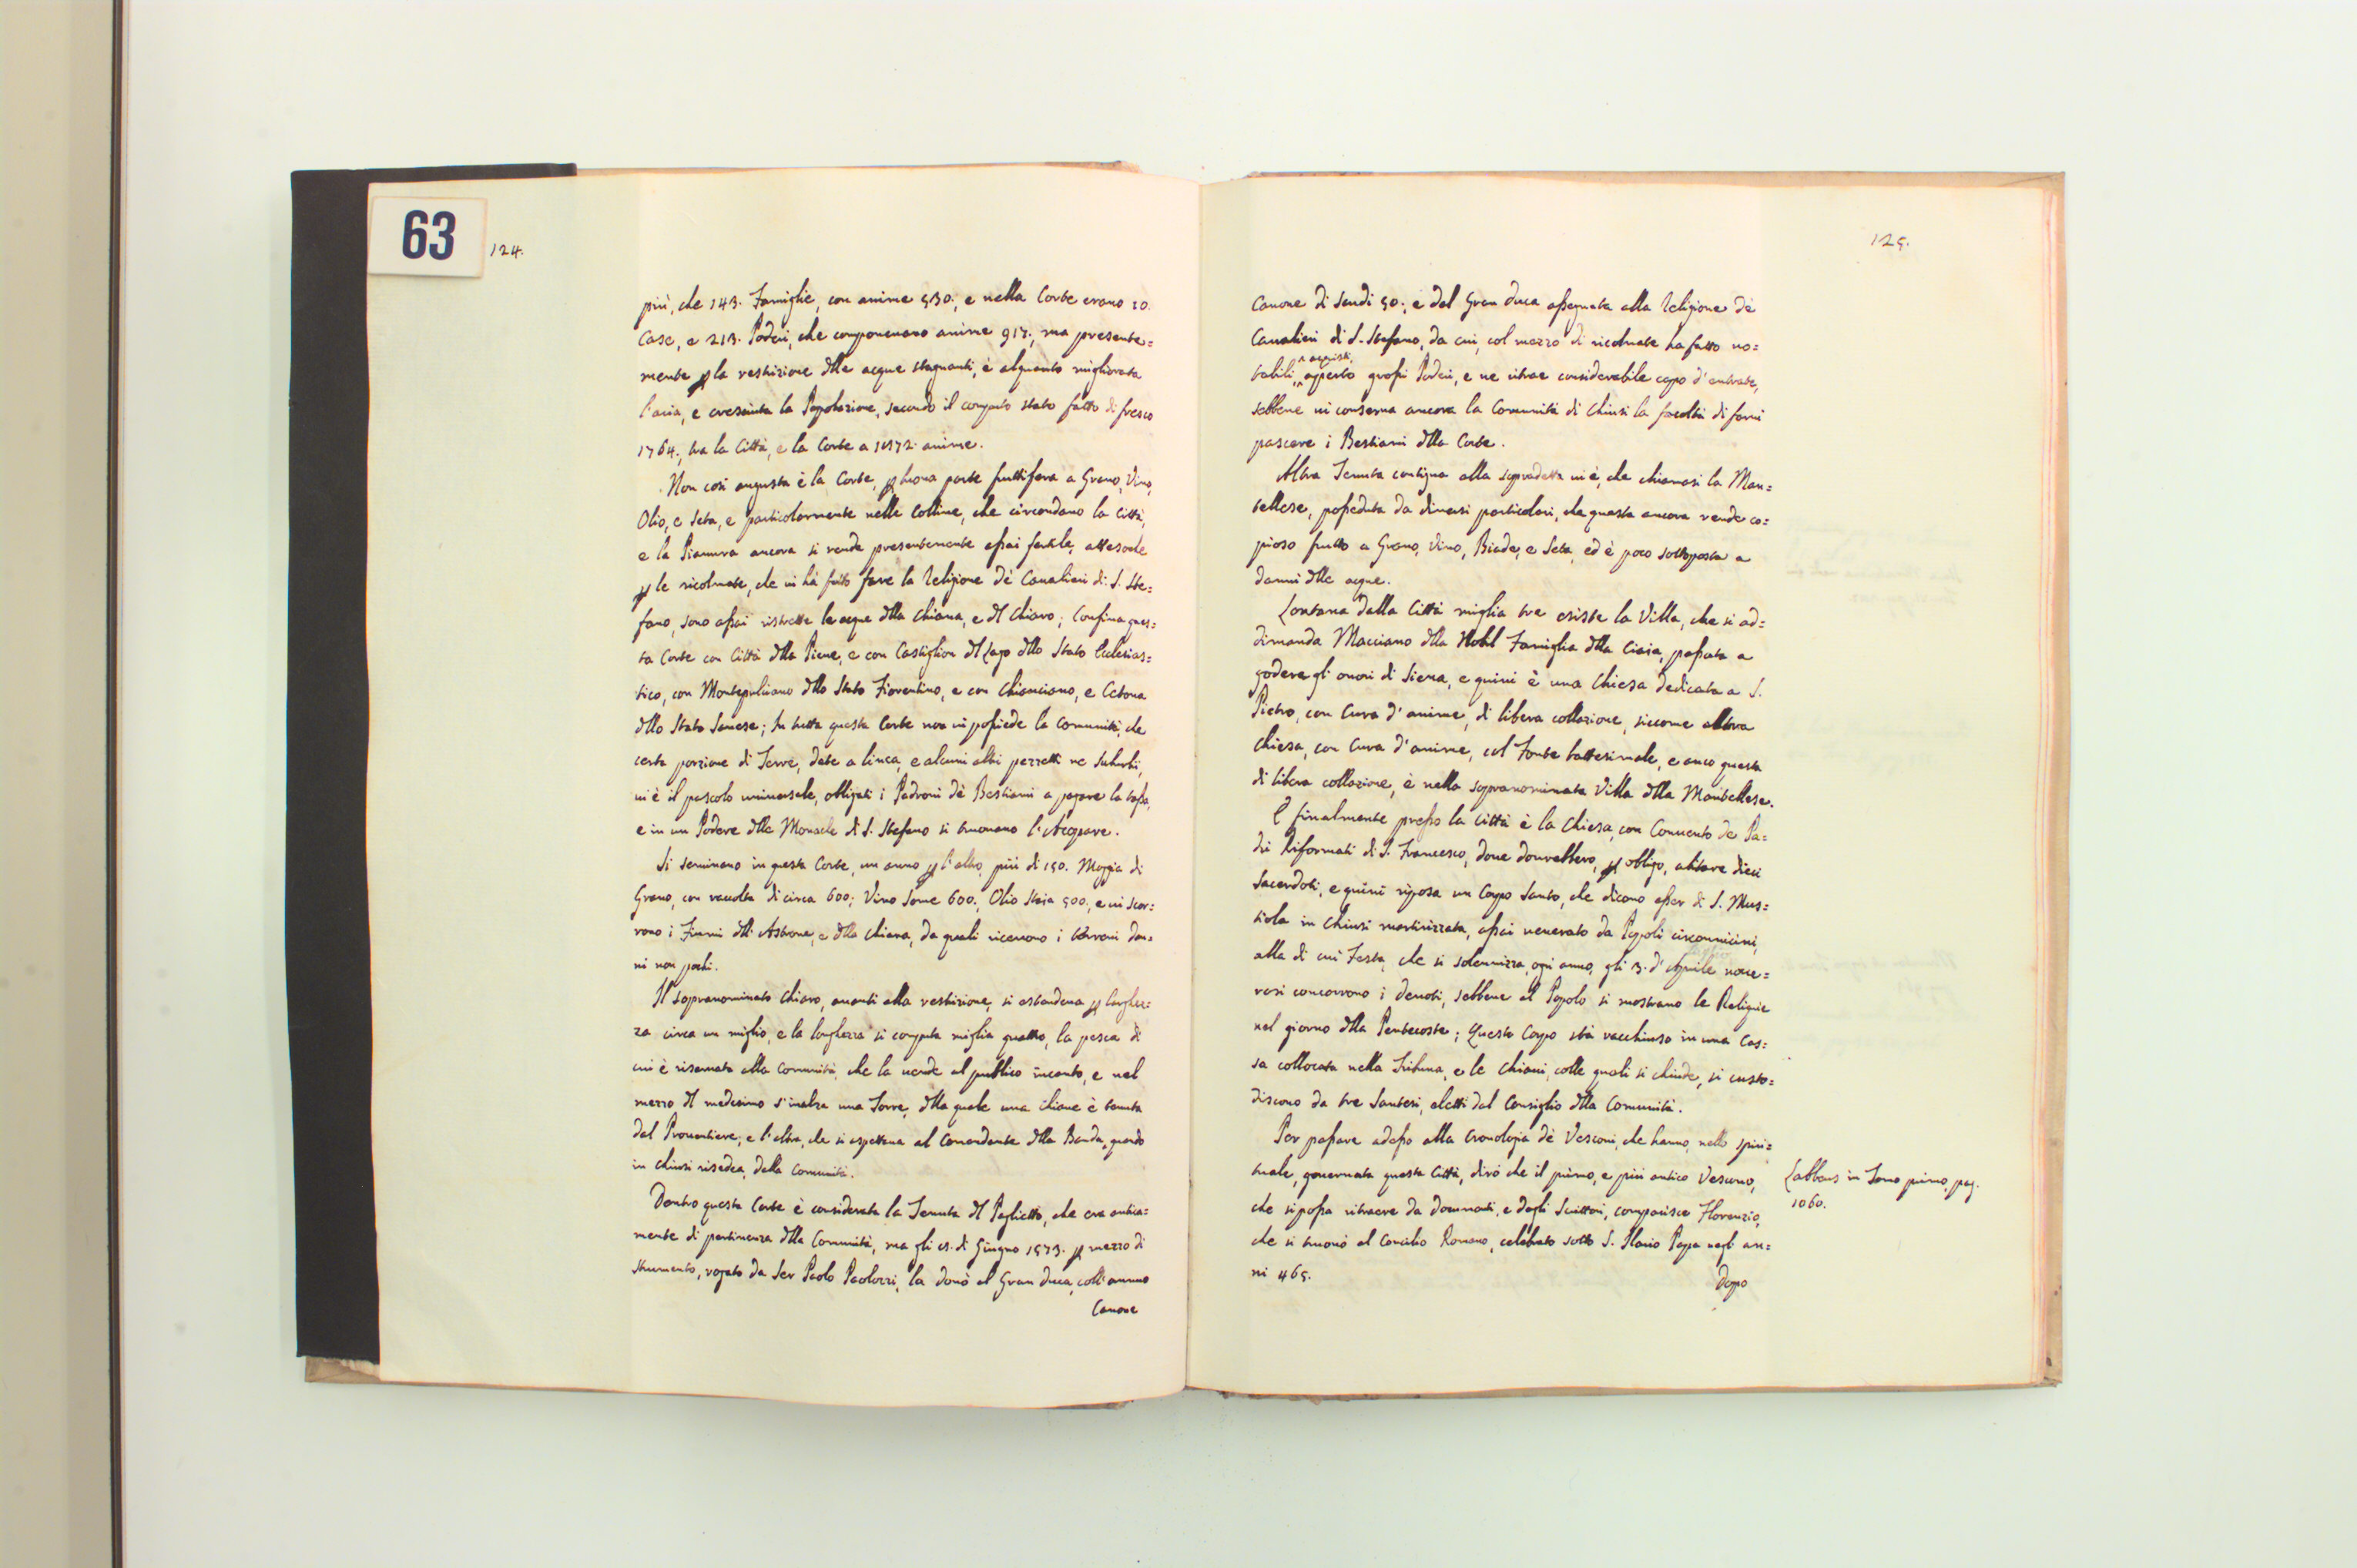 63
124.
più, che 143. Famiglie, con anime 530., e nella Corte erano 20.
Case, e 213. Poderi, che componevano anime 917., ma presente=
mente p la restrizione dlle acque stagnanti, è alquanto migliorata
l'aria, e cresciuta la Popolazione, secondo il computo stato fatto di fresco
1764., tra la Città, e la Corte a anime.
Non così angusta è la Corte, p buona parte fruttifera a Grano, Vino,
Olio, e Seta, e particolarmente nelle Colline, che circondano la Città,
e la Pianura ancora si rende presentemente assai fertile, attesoche
p le ricolmate, che vi hà fatto fare la Religione dè Cavalieri di S. Ste=
fano, sono assai ristrette le acque dlla Chiana, e dl Chiaro; Confina ques=
ta Corte con Città dlla Pieve, e con Castiglion dl Lago dllo Stato Ecclesias=
tico, con Montepulciano dllo Stato Fiorentino, e con Chianciano, e Cetona
dllo Stato Sanese; In tutta questa Corte non vi possiede la Comunità, che
certa porzione di Terre, date a linea, e alcuni altri pezzetti ne Suburbi,
vi è il pascolo universale, obligati i Padroni dè Bestiami a pagare la tassa,
e in un Podere dlle Monache di S. Stefano si truovano l'Acquare.
Si seminano in questa Corte, un anno p l'altro, più di 150. Moggia di
Grano, con raccolta di circa 600; Vino Some 600., Olio Staia 500., e vi scor=
rono i Fiumi dll'Astrone, e dlla Chiana, da quali ricevono i terreni dan=
ni non pochi.
Il sopranominato Chiaro, avanti alla restrizione, si estendeva p larghez=
za circa un miglio, e la longhezza si computa miglia quattro, la pesca di
cui è riservata alla Comunità, che la vende al publico incanto, e nel
mezzo dl medesimo s'inalza una Torre, dlla quale una chiave è tenuta
dal Proventiere, e l'altra, che si aspettava al Comandante dlla Banda, quando
in Chiusi risedea, dalla Comunità.
Dentro questa Corte è considerata la Tenuta dl Paglieto, che era antica=
mente di pertinenza dlla Comunità, ma gli di Giugno 1573. p mezzo di
Strumento, rogato da Ser Paolo Paolozzi, la donò al Gran Duca, coll'annuo
Canone
125.
Canone di Scudi 50., e dal Gran Duca assegnata alla Religione dè
Cavalieri di S. Stefano, da cui, col mezzo di ricolmate ha fatto no=
acquisti,
tabili, aperto grossi Poderi, e ne ritrae considerabile capo d'entrate,
sebbene vi conserva ancora la Comunità di Chiusi la facoltà di farvi
pascere i Bestiami dlla Corte.
Altra Tenuta contigua alla sopradetta vi è, che chiamasi la Man=
tellese, posseduta da diversi particolari, che questa ancora rende co=
pioso frutto a Grano, Vino, Biade, e Seta, ed è poco sottoposta a
danni dlle acque.
Lontana dalla Città miglia tre esiste la Villa, che si ad=
dimanda Macciano dlla Nobil Famiglia dlla Ciaia, passata a
godere gli onori di Siena, e quivi è una Chiesa dedicata a S.
Pietro, con Cura d'anime, di libera collazione, siccome altra
Chiesa, con Cura d'anime, col Fonte battesimale, e anco questa
di libera collazione, è nella sopranominata Villa dlla Mantellese.
E finalmente presso la Città è la Chiesa, con Convento de Pa=
dri Riformati di S. Francesco, dove dovrebbero, p obligo, abitare dieci
Sacerdoti, e quivi riposa un Corpo Santo, che dicono esser di S. Mus=
tiola in Chiusi martirizzata, assai venerato da Popoli circonvicini,
alla di cui Festa, che si solennizza, ogni anno, gli 3. d'Aprile nume=
rosi concorrono i devoti, sebbene al Popolo si mostrano le Reliquie
nel giorno dlla Pentecoste; Questo Corpo stà racchiuso in una Cas=
sa collocata nella Tribuna, e le Chiavi, colle quali si chiude, si custo=
discono da tre Santesi, eletti dal Consiglio dlla Comunità.
Per passare adesso alla Cronologia dè Vescovi, che hanno, nello spiri=
tuale, governata questa Città, dirò che il primo, e più antico Vescovo,
che si possa ritraere da Documenti, e dagli Scrittori, comparisce Florenzio,
che si truovò al Concilio Romano, celebrato sotto S. Ilario Papa negl'an=
ni 465.
Dopo
Labbeus in Tomo primo, pag.
1060.